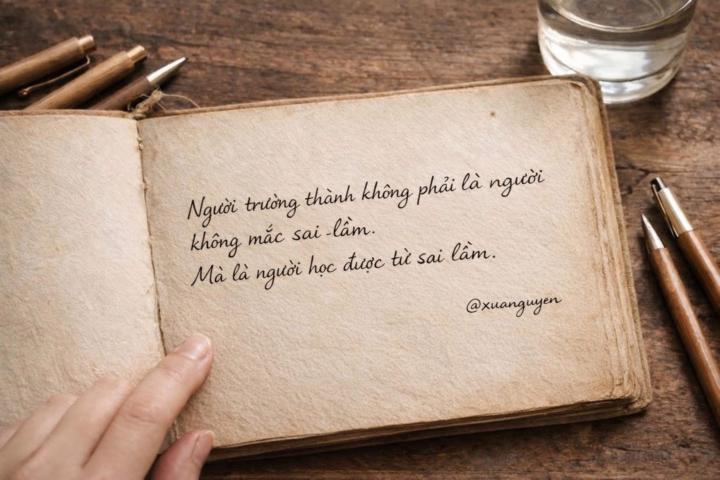 Người trưởng thành không phải là người
không mắc sai -lầm.
Mà là người học được từ sai lầm.
@xuanguyen